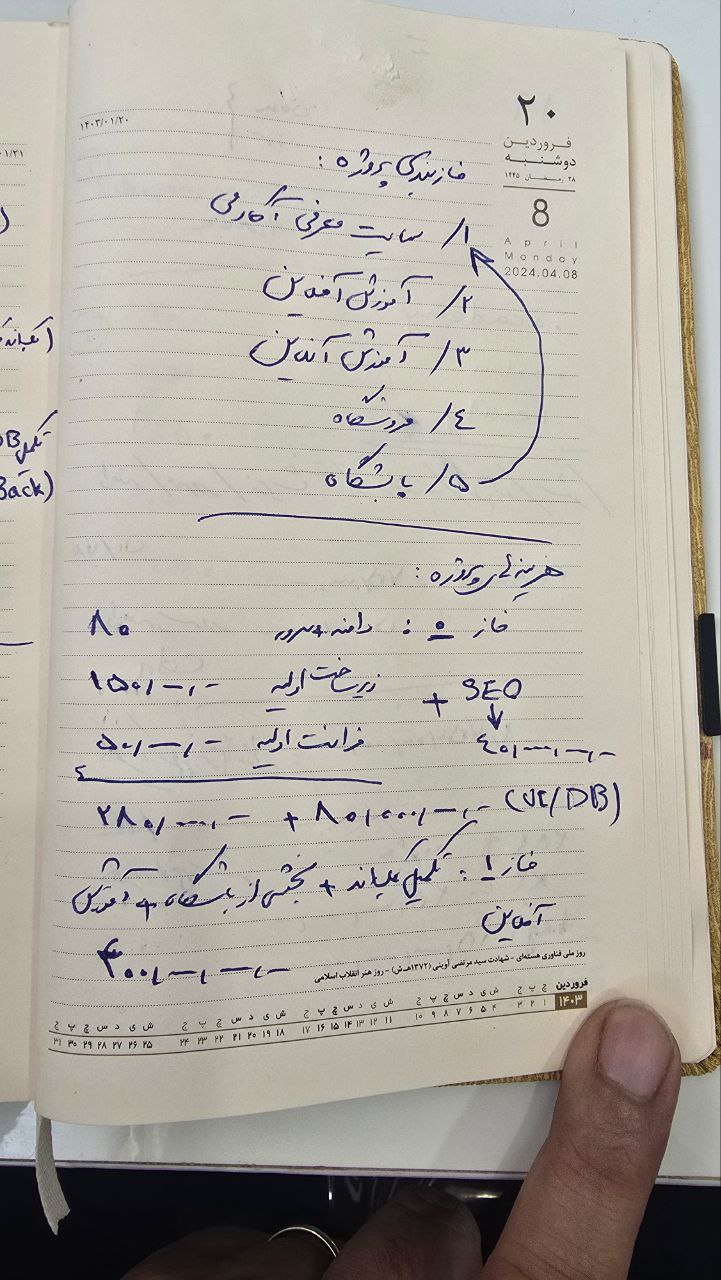 ۱۴۰۳/۰۱/۲۰
۲۰
فروردین
دوشنبه
۲۸ رمضان ۱۴۴۵
8
April
Monday
2024.04.08
۰۱/۲۱
فازبندی پروژه :
۱/ سایت معرفی آکادمی
۲/ آموزش آفلاین
۳/ آموزش آنلاین
۴/ فروشگاه
۵/ باشگاه
DB تکمیل
Back)
هزینه‌های پروژه :
فاز ۰ : دامنه + سرور ۸۰
زیرساخت اولیه ۱۵۰/۰۰۰/-
+ SEO
فرانت اولیه ۵۰/۰۰۰/-
۴۰/۰۰۰/۰۰۰/-
۲۸۰/۰۰۰/- + ۸۰/۰۰۰/۰۰۰/- (UI/DB)
فاز ۱ : تکمیل + بخشی از باشگاه + آموزش
آفلاین
۳۰۰/۰۰۰/۰۰۰/-
روز ملی فناوری هسته‌ای - شهادت سید مرتضی آوینی (۱۳۷۲هـ.ش) - روز هنر انقلاب اسلامی
فروردین ج پ چ س د ی ش ج پ چ س د ی ش ج پ چ س د ی ش ج پ چ س د ی ش
۱۴۰۳ ۱ ۲ ۳ ۴ ۵ ۶ ۷ ۸ ۹ ۱۰ ۱۱ ۱۲ ۱۳ ۱۴ ۱۵ ۱۶ ۱۷ ۱۸ ۱۹ ۲۰ ۲۱ ۲۲ ۲۳ ۲۴ ۲۵ ۲۶ ۲۷ ۲۸ ۲۹ ۳۰ ۳۱